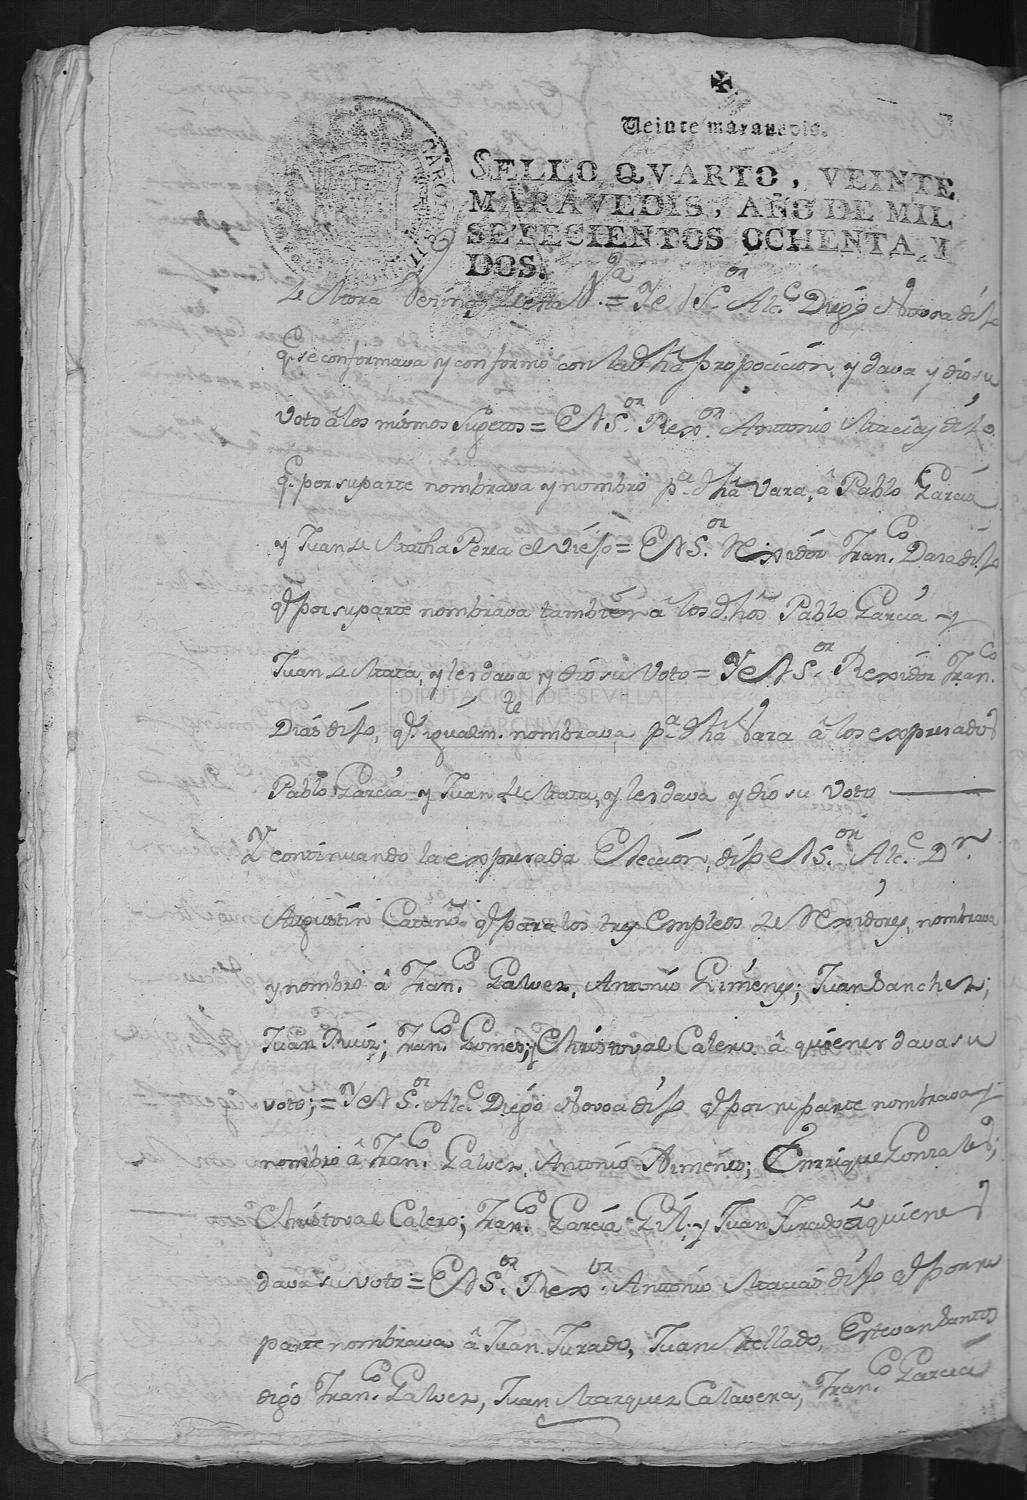 Veinte maravedis.
SELLO QVARTO, VEINTE
MARAVEDIS, AÑO DE MIL
SETECIENTOS OCHENTA Y
DOS.
CAROLUS III
de Mora Vecinos de esta V.ª = Y el S.or Alc.e Diego Novoa dijo
q.e se conformava y conformó con la dha proposicion, y dava y dio su
voto â los mismos Sugetos = El S.or Rex.or Antonio Macias dijo
q.e por su parte nombrava y nombró p.a dha Vara, â Pablo Garcia
y Juan de Matha Perea el Viejo = El S.or Rexidor Fran.co Daza dijo
q.e por su parte nombrava tambien â los dhos Pablo Garcia y
Juan de Mata, y les dava y dio su Voto = Y el S.or Rexidor Fran.co
DIPUTACIÓN DE SEVILLA
ARCHIVO
Dias dijo, q.e igualm.te nombrava, p.a dha Vara â los expresados
Pablo Garcia y Juan de Mata, y les dava y dio su Voto
Y continuando la expresada Eleccion, dijo el S.or Alc.e D.n
Augustin q.e para los tres Empleos de Rexidores, nombrava
y nombró â Fran.co Galvez, Antonio Gimenes; Juan Sanchez;
Juan Ruiz; Fran.co Gomes; y Christoval Calero â quienes dava su
voto; = Y el S.or Alc.e Diego Novoa dijo q.e por su parte nombrava y
nombró â Fran.co Galvez, Antonio Ximenes; Enrrique Gonzales;
Christoval Calero; Fran.co Garcia Gil; y Juan Jurado â quienes
dava su voto = El S.or Rex.or Antonio Macias dijo q.e por su
parte nombrava â Juan Jurado, Juan Mellado, Estevan Santos
digo Fran.co Galvez, Juan Marquez Calavera, Fran.co Garcia